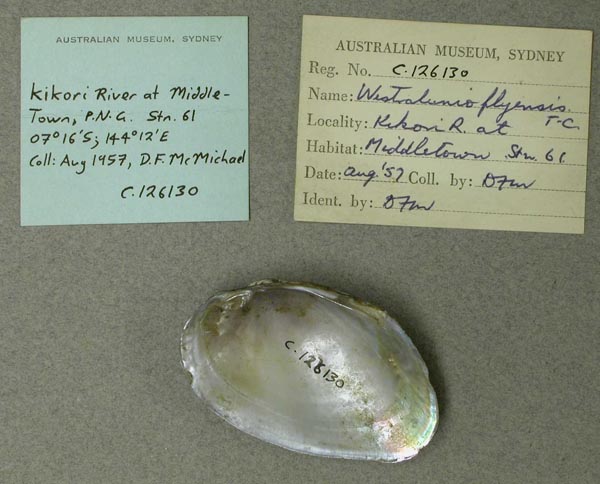 AUSTRALIAN MUSEUM, SYDNEY
Kikori River at Middle-
Town, P.N.G. Stn. 61
07°16'S; 144°12'E
Coll: Aug 1957, D.F. McMichael
C.126130
AUSTRALIAN MUSEUM, SYDNEY
Reg. No. C.126130
Name: Westralunio flyensis
T-C.
Locality: Kikori R. at
Habitat: Middletown Stn. 61
Date: Aug '57 Coll. by: DFM
Ident. by: DFM
C.126130